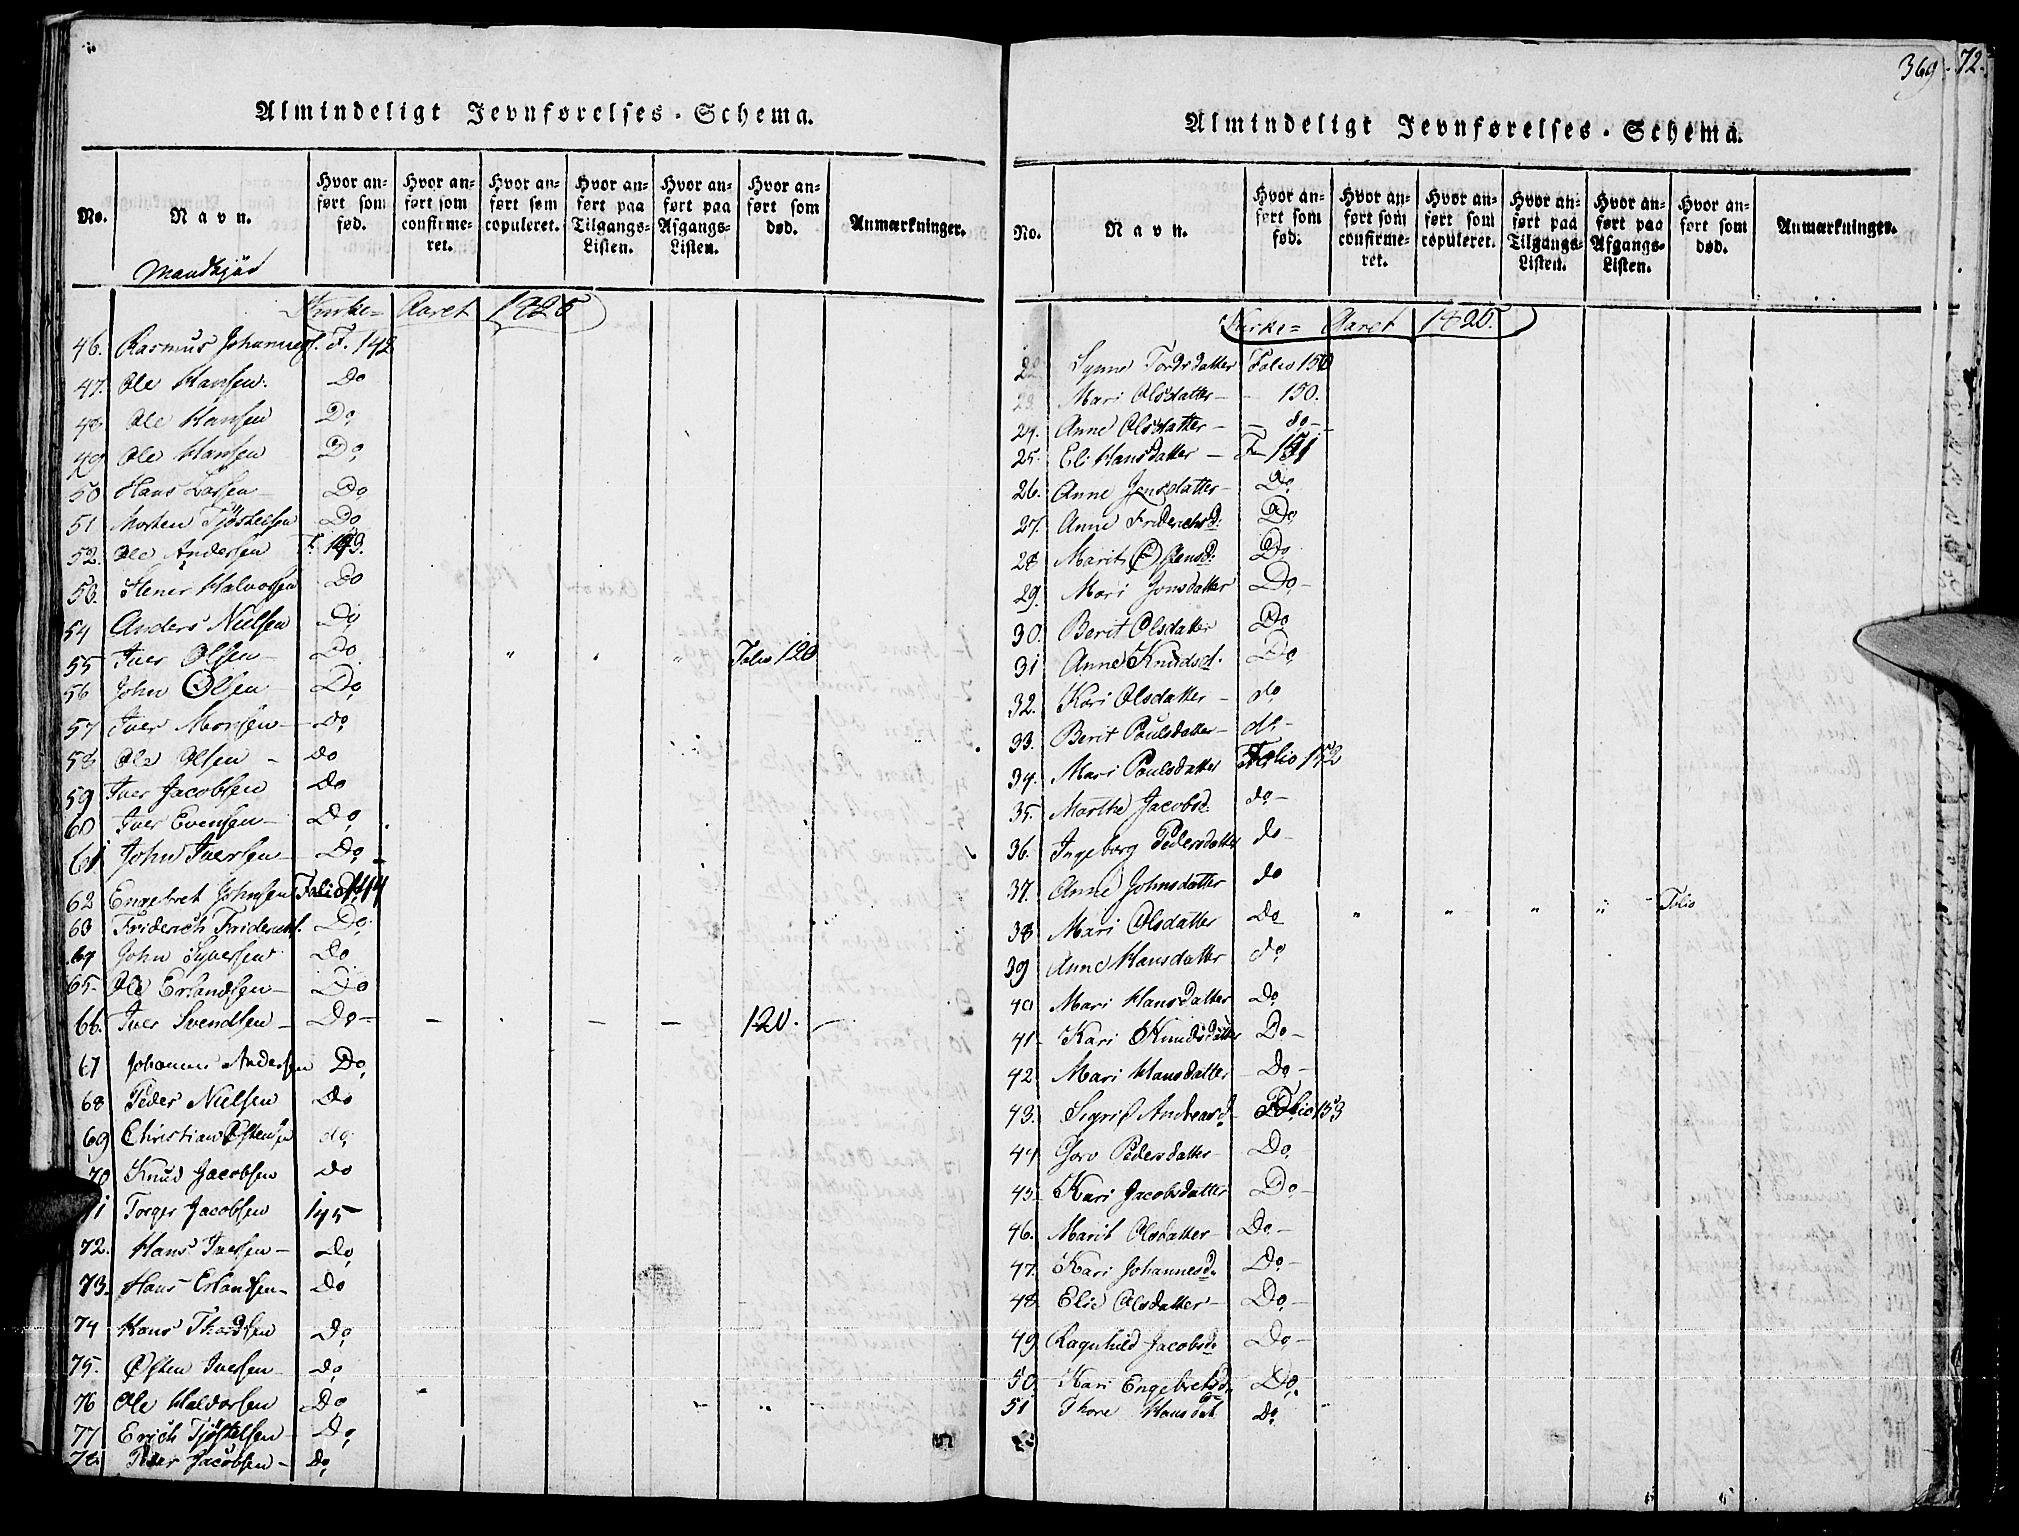 Almindeligt Jevnførelses-Schema.
No. Navn. Hvor anført som fød. Hvor anført som confirmeret. Hvor anført som copuleret. Hvor anført paa Tilgangs-Listen. Hvor anført paa Afgangs-Listen. Hvor anført som død. Anmærkninger.
Mandkjøn
Kirke= Aaret 1820
46. Rasmus Johannesf. F. 142
47. Ole Hansen. Do
48 Ole Hansen Do
49 Ole Hansen Do
50 Hans Larsen Do
51 Morten Tjøstelsen Do
52. Ole Andersen F. 143.
53. Stener Halvorsen Do
54 Anders Nielsen Do
55 Iver Olsen Do " " " " Folio 120
56 John Olsen Do
57 Iver Monsen Do
58 Ole Olsen - Do
59 Iver Jacobsen Do
60 Iver Evensen Do
61 John Iversen Do
62 Engebret Johnsen Folio 144
63 Friderich Friderichs. Do
64 John Syversen Do
65 Ole Erlandsen Do
66. Iver Svendsen Do - - - - 120. -
67 Johannes Andersen Do
68 Peder Nielsen Do
69 Christian Østensen do
70 Knud Jacobsen Do
71 Torger Jacobsen 145
72. Hans Iversen Do
73. Hans Erlandsen Do
74 Hans Thordsen Do
75 Østen Iversen Do
76 Ole Halvorsen Do
77 Erich Tjøstelsen Do
78. Peder Jacobsen Do
369
72.
Almindeligt Jevnførelses-Schema.
No. Navn. Hvor anført som fød. Hvor anført som confirmeret. Hvor anført som copuleret. Hvor anført paa Tilgangs-Listen. Hvor anført paa Afgangs-Listen. Hvor anført som død. Anmærkninger.
Kirke= Aaret 1820.
22 Synne Tordsdatter Folio 150
23. Mari Olsdatter - 150.
24. Anne Olsdatter - do
25. Eli Hansdatter - F 151
26. Anne Jensdatter Do
27. Anne Friderichsd: Do
28 Marit Østensd: Do
29. Mari Jonsdatter Do
30. Berit Olsdatter Do
31 Anne Knudsd. Do
32. Kari Olsdatter - do
33. Berit Paulsdatter do
34. Mari Paulsdatter Folio 152
35. Marthe Jacobsd. do
36. Ingeborg Pedersdatter do
37. Anne Johnsdatter do
38 Mari Olsdatter Do " " " " Folio
39 Anne Hansdatter do
40 Mari Hansdatter Do
41 Kari Knudsdatter Do
42. Mari Hansdatter Do
43. Sigrid Andreasd. Folio 153
44 Goro Pedersdatter Do
45. Kari Jacobsdatter Do
46. Marit Olsdatter Do
47. Kari Johannesd. Do
48. Elie Olsdatter Do
49. Ragnhild Jacobsd. Do
50. Kari Engebretsd. Do
51 Thore Hansdat Do